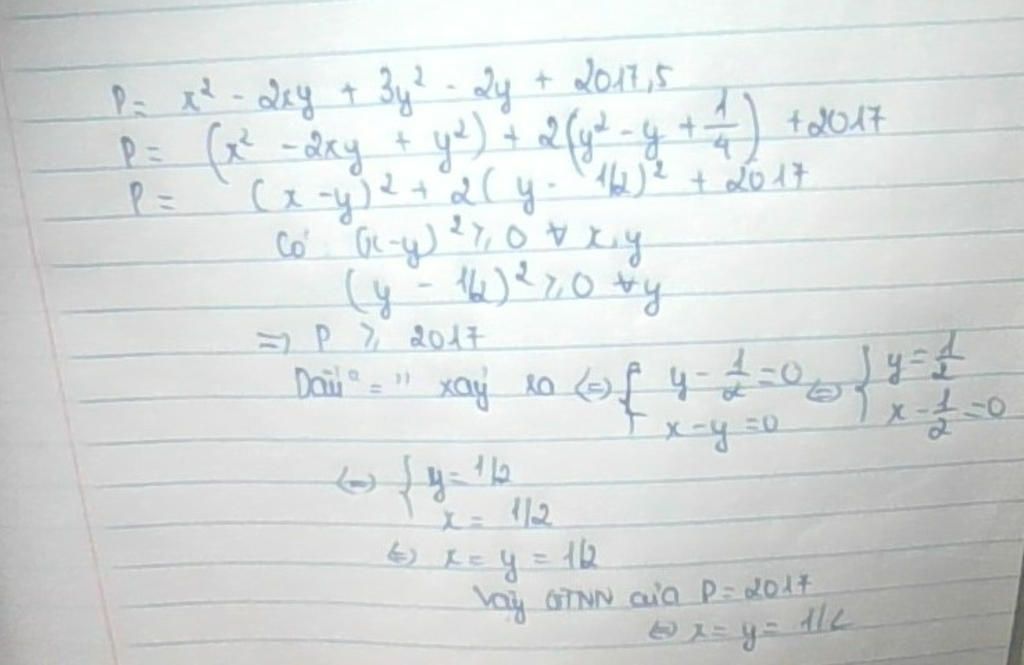 P = x² - 2xy + 3y² - 2y + 2017,5
P = (x² - 2xy + y²) + 2(y² - y + 1/4) + 2017
P = (x - y)² + 2(y - 1/2)² + 2017
Có (x-y)² ≥ 0 ∀ x,y
(y - 1/2)² ≥ 0 ∀ y
=> P ≥ 2017
Dấu "=" xảy ra <=> { y - 1/2 = 0 <=> { y = 1/2
x - y = 0 x - 1/2 = 0
<=> { y = 1/2
x = 1/2
<=> x = y = 1/2
Vậy GTNN của P = 2017
<=> x = y = 1/2